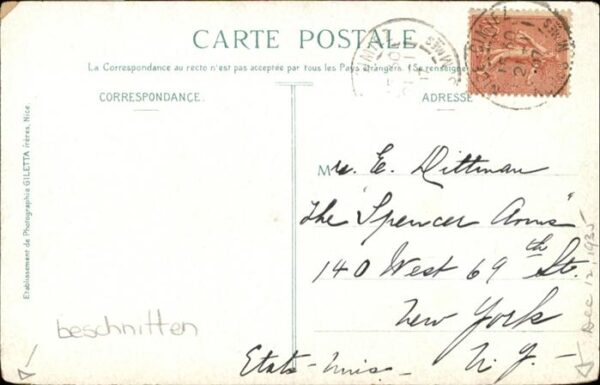 CARTE POSTALE
La Correspondance au recto n'est pas acceptée par tous les Pays étrangers. (Se renseigner
CORRESPONDANCE.
ADRESSE
M
E. Dittman
The "Spencer Arms"
140 West 69th St.
New York
Etats-Unis - N.Y. -
Etablissement de Photographie GILETTA frères, Nice.
beschnitten
Dec 12, 1935